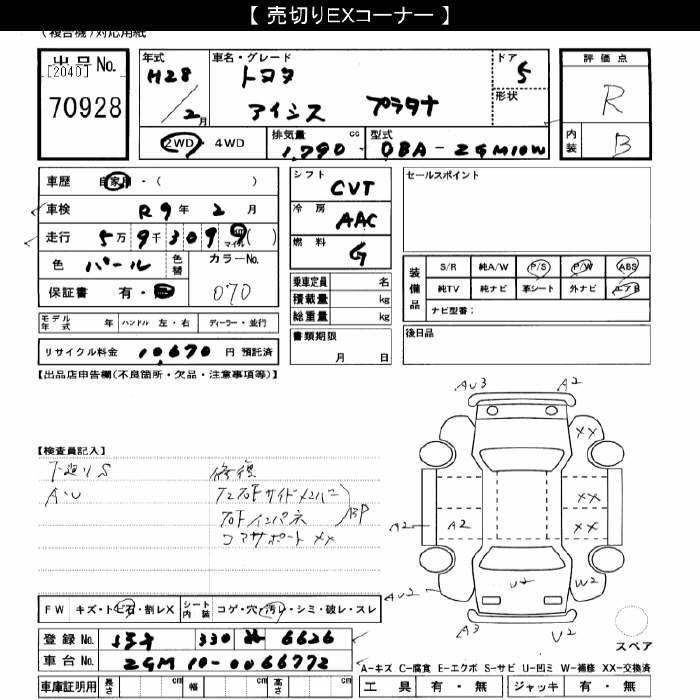 【 売切りEXコーナー 】
(複合機)対応用紙
出品No.
[2040]
70928
年式 H28 / 2月
車名・グレード トヨタ
アイシス プラタナ
ドア 5
形状
評価点
R
内装 B
2WD ・ 4WD
排気量 1,790 cc
型式 DBA - ZGM10W
車歴 自家用・( )
車検 R9年 2月
走行 5万9千309 km マイル ( )
色 パール 色替
カラーNo. 070
保証書 有・無
モデル年式 年 ハンドル 左・右 ディーラー・並行
リサイクル料金 10,670 円 預託済
シフト CVT
冷房 AAC
燃料 G
乗車定員 名
積載量 kg
総重量 kg
書類期限
月 日
セールスポイント
装備品
S/R 純A/W P/S P/W ABS
純TV 純ナビ 革シート 外ナビ エアB
ナビ型番:
後日品
【出品店申告欄(不良箇所・欠品・注意事項等)】
【検査員記入】
下廻りS
A・U
修復
右サイドメンバー
インパネ
BP
コアサポートXX
AU3 A2
XX
XX
A2 A2 XX
AU2 U2 W2
A3 U2
スペア
FW キズ・トビ石・割レX
シート内装 コゲ・穴・汚レ・シミ・破レ・スレ
登録No. 330 6626
車台No. ZGM10-0066772
A-キズ C-腐食 E-エクボ S-サビ U-凹ミ W-補修 XX-交換済
車庫証明用 長さ cm 幅 cm 高さ cm
工具 有・無 ジャッキ 有・無